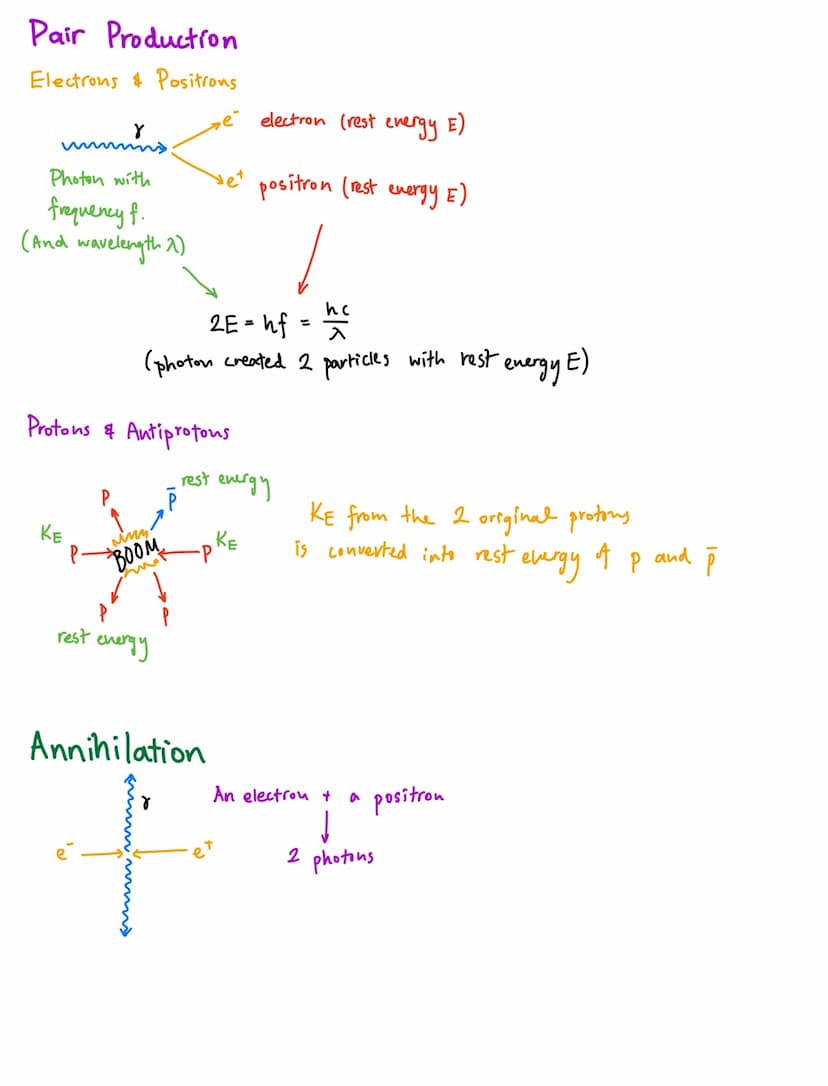 Pair Production
Electrons & Positrons
γ
e⁻ electron (rest energy E)
e⁺ positron (rest energy E)
Photon with
frequency f.
(And wavelength λ)
2E = hf = hc/λ
(photon created 2 particles with rest energy E)
Protons & Antiprotons
rest energy
P p̄
KE KE
P BOOM P
P P
rest energy
KE from the 2 original protons
is converted into rest energy of p and p̄
Annihilation
γ
An electron + a positron
e⁻ e⁺
2 photons